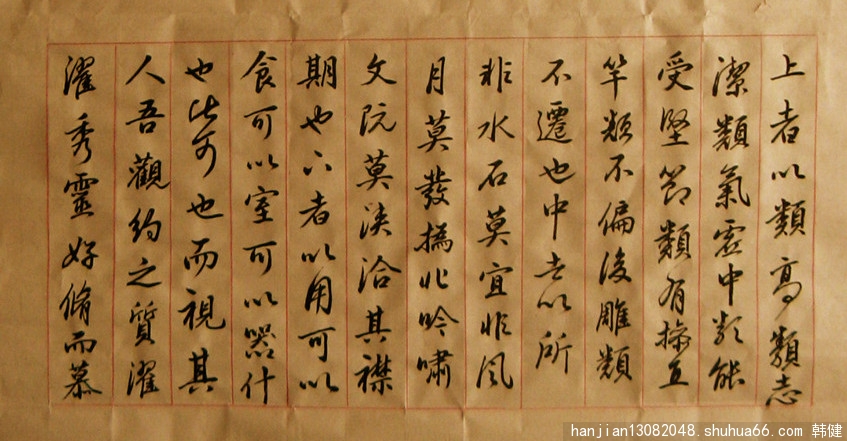 上者以類高類志
潔類氣虛中類能
受堅節類有操互
竿類不偏後雕類
不遷也中者以所
非水石莫宜非風
月莫發撝非吟嘯
文阮莫浹洽其襟
期也下者以用可以
食可以室可以器什
也此可也而視其
人吾觀約之質濯
濯秀靈好脩而慕
hanjian13082048.shuhua66.com 韩健